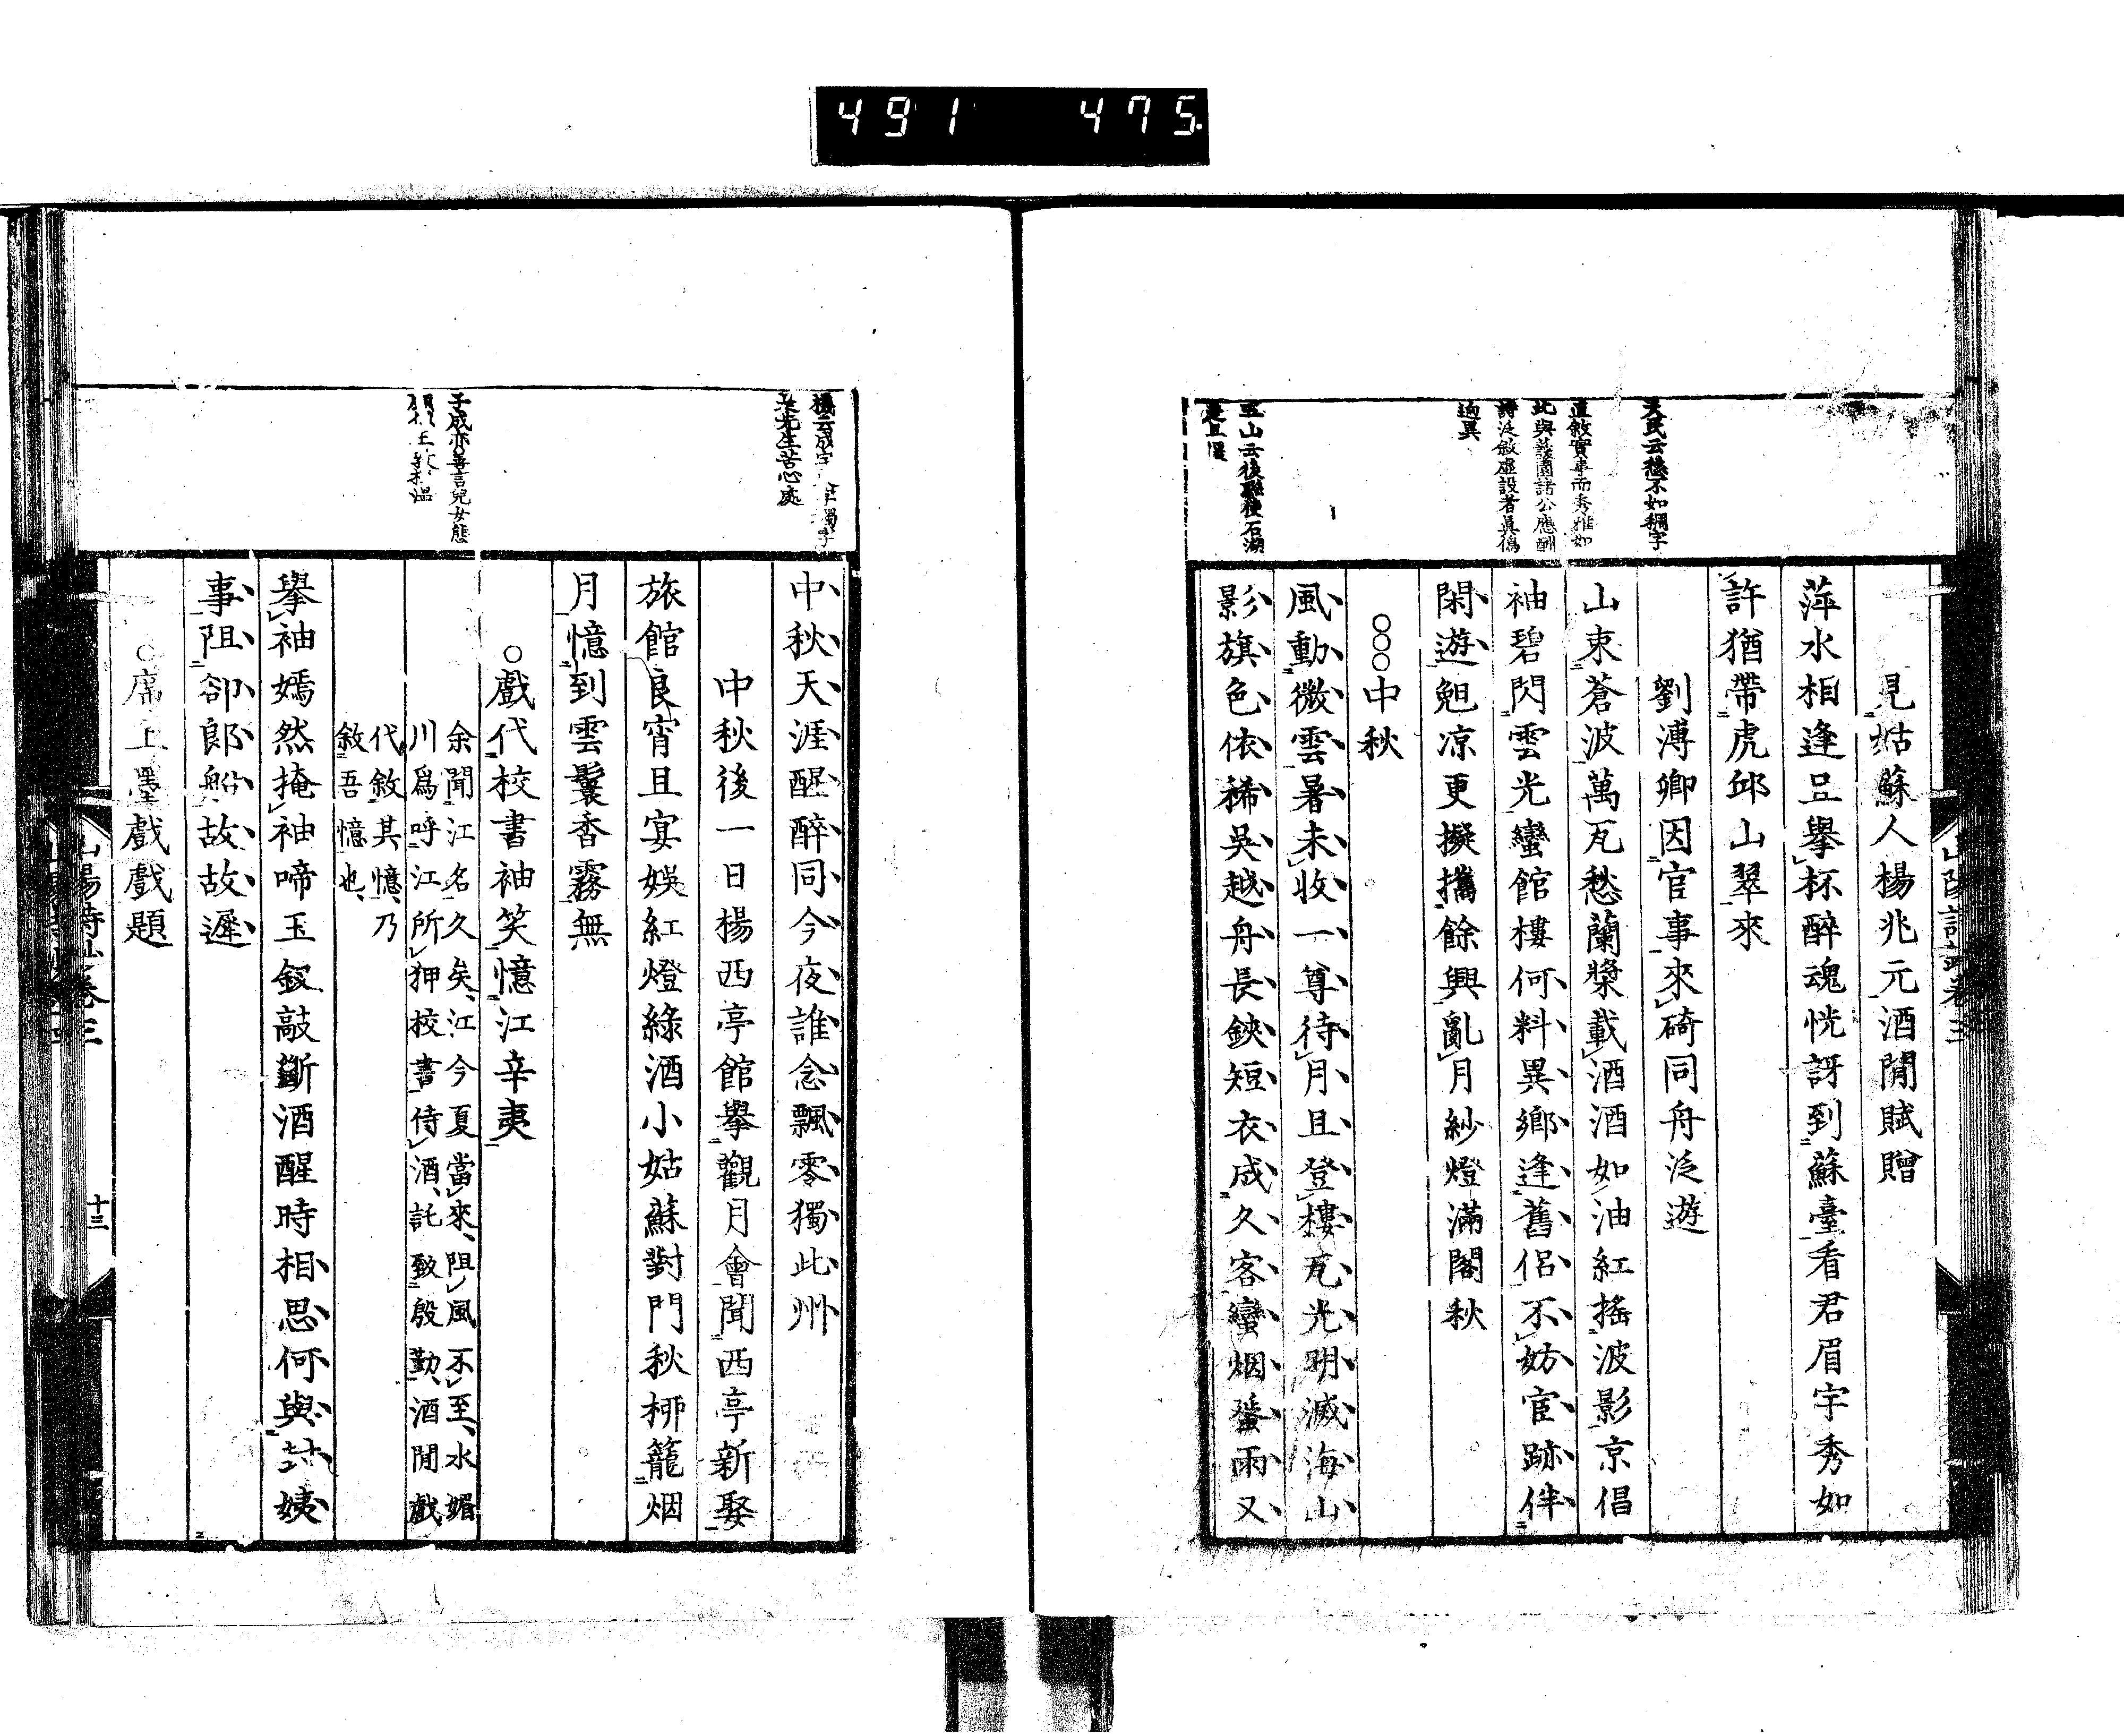 491 475
天民云愁不如稠字
直敘實事而秀雅如
此與蘐園諸公應酬
詩泛敘虛設者眞僞
逈異
五山云後聯獲石湖
見姑蘇人楊兆元酒閒賦贈
萍水相逢且擧杯醉魂恍訝到蘇臺看君眉宇秀如
許猶帶虎邱山翠來
劉溥卿因官事來碕同舟泛遊
山束蒼波萬瓦愁蘭槳載酒酒如油紅搖波影京倡
袖碧閃雲光蠻館樓何料異鄉逢舊侶不妨宦跡伴
閑遊魭凉更擬攜餘興亂月紗燈滿閣秋
○○○中秋
風動微雲暑未收一尊待月且登樓瓦光明滅海山
影旗色依稀吳越舟長鋏短衣成久客蠻烟蜑雨又
山陽詩鈔卷三
子成亦善言兒女態
是先生苦心處
中秋天涯醒醉同今夜誰念飄零獨此州
中秋後一日楊西亭館擧觀月會聞西亭新娶
旅館良宵且宴娛紅燈綠酒小姑蘇對門秋栁籠烟
月憶到雲鬟香霧無
○戲代校書袖笑憶江辛夷
余聞江名久矣、江今夏當來、阻風不至、水媚
川爲呼江所狎校書侍酒、託致殷勤、酒閒戲
代敘其憶、乃
敘吾憶也、
擧袖嫣然掩袖啼玉釵敲斷酒醒時相思何與封姨
事阻郤郞船故故遲
○席上墨戲戲題
山陽詩鈔卷三
十三